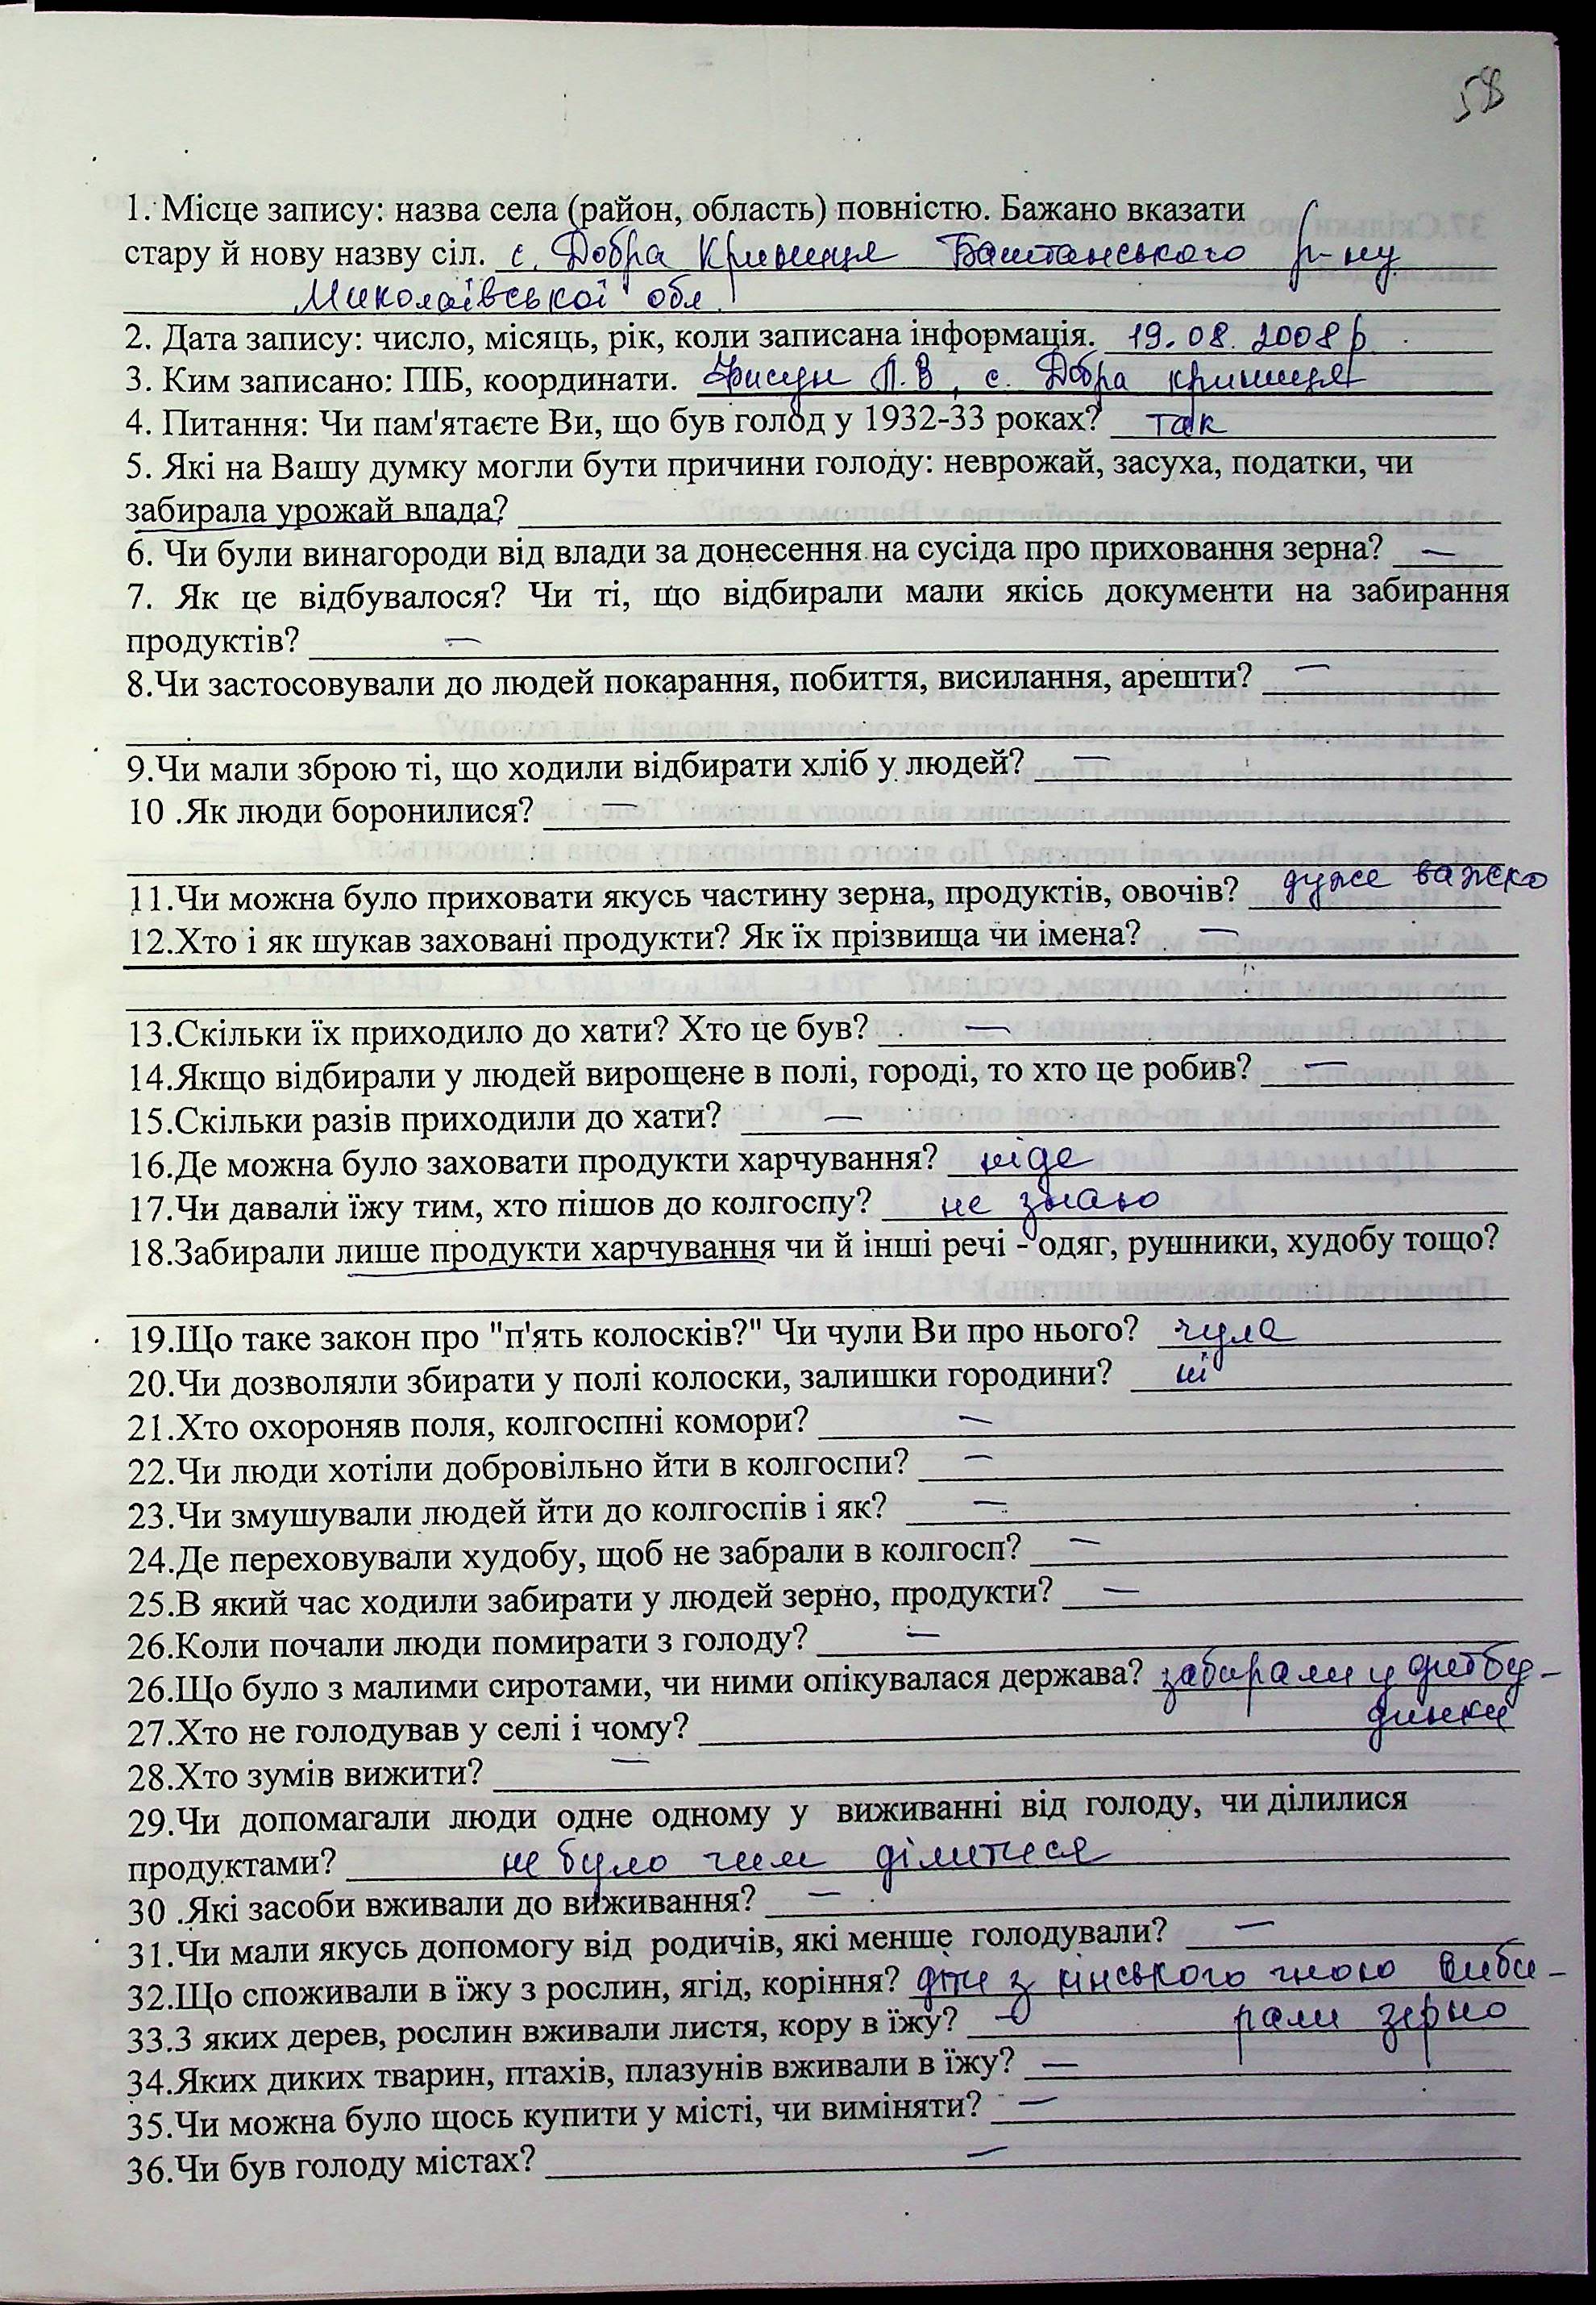 58
1. Місце запису: назва села (район, область) повністю. Бажано вказати
стару й нову назву сіл. с. Добра Криниця Баштанського р-ну
Миколаївської обл.
2. Дата запису: число, місяць, рік, коли записана інформація. 19.08.2008р.
3. Ким записано: ПІБ, координати. Л.В, с. Добра криниця
4. Питання: Чи пам'ятаєте Ви, що був голод у 1932-33 роках? так
5. Які на Вашу думку могли бути причини голоду: неврожай, засуха, податки, чи
забирала урожай влада?
6. Чи були винагороди від влади за донесення на сусіда про приховання зерна? —
7. Як це відбувалося? Чи ті, що відбирали мали якісь документи на забирання
продуктів? —
8.Чи застосовували до людей покарання, побиття, висилання, арешти? —
9.Чи мали зброю ті, що ходили відбирати хліб у людей? —
10 .Як люди боронилися? —
11.Чи можна було приховати якусь частину зерна, продуктів, овочів? дуже важко
12.Хто і як шукав заховані продукти? Як їх прізвища чи імена? —
13.Скільки їх приходило до хати? Хто це був? —
14.Якщо відбирали у людей вирощене в полі, городі, то хто це робив? —
15.Скільки разів приходили до хати? —
16.Де можна було заховати продукти харчування? ніде
17.Чи давали їжу тим, хто пішов до колгоспу? не знаю
18.Забирали лише продукти харчування чи й інші речі - одяг, рушники, худобу тощо?
19.Що таке закон про "п'ять колосків?" Чи чули Ви про нього? чула
20.Чи дозволяли збирати у полі колоски, залишки городини? ні
21.Хто охороняв поля, колгоспні комори? —
22.Чи люди хотіли добровільно йти в колгоспи? —
23.Чи змушували людей йти до колгоспів і як? —
24.Де переховували худобу, щоб не забрали в колгосп? —
25.В який час ходили забирати у людей зерно, продукти? —
26.Коли почали люди помирати з голоду? —
26.Що було з малими сиротами, чи ними опікувалася держава? забирали у дитбу-
27.Хто не голодував у селі і чому? динки
28.Хто зумів вижити? —
29.Чи допомагали люди одне одному у виживанні від голоду, чи ділилися
продуктами? не було чим ділитися
30 .Які засоби вживали до виживання? —
31.Чи мали якусь допомогу від родичів, які менше голодували? —
32.Що споживали в їжу з рослин, ягід, коріння? діти з кінського гною виби-
33.З яких дерев, рослин вживали листя, кору в їжу? — рали зерно
34.Яких диких тварин, птахів, плазунів вживали в їжу? —
35.Чи можна було щось купити у місті, чи виміняти? —
36.Чи був голоду містах? —